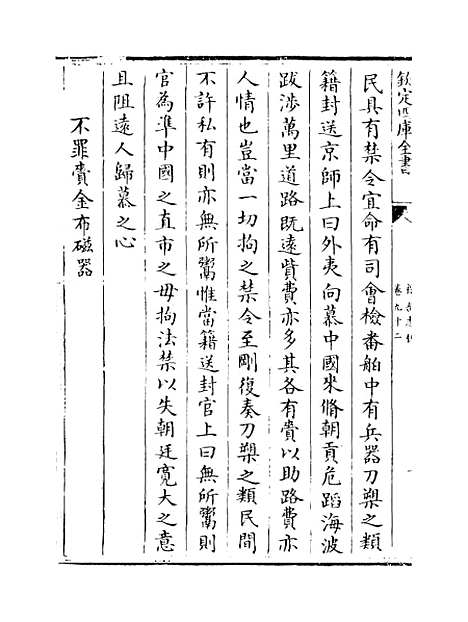 欽定四庫全書
卷九十二
民具有禁令宜命有司會檢番舶中有兵器刀槊之類
籍封送京師上曰外夷向慕中國來脩朝貢危蹈海波
跋涉萬里道路既遠貲費亦多其各有賫以助路費亦
人情也豈當一切拘之禁令至剛復奏刀槊之類民間
不許私有則亦無所鬻惟當籍送封官上曰無所鬻則
官為準中國之直市之毋拘法禁以失朝廷寬大之意
且阻遠人歸慕之心
不罪賫金布磁器